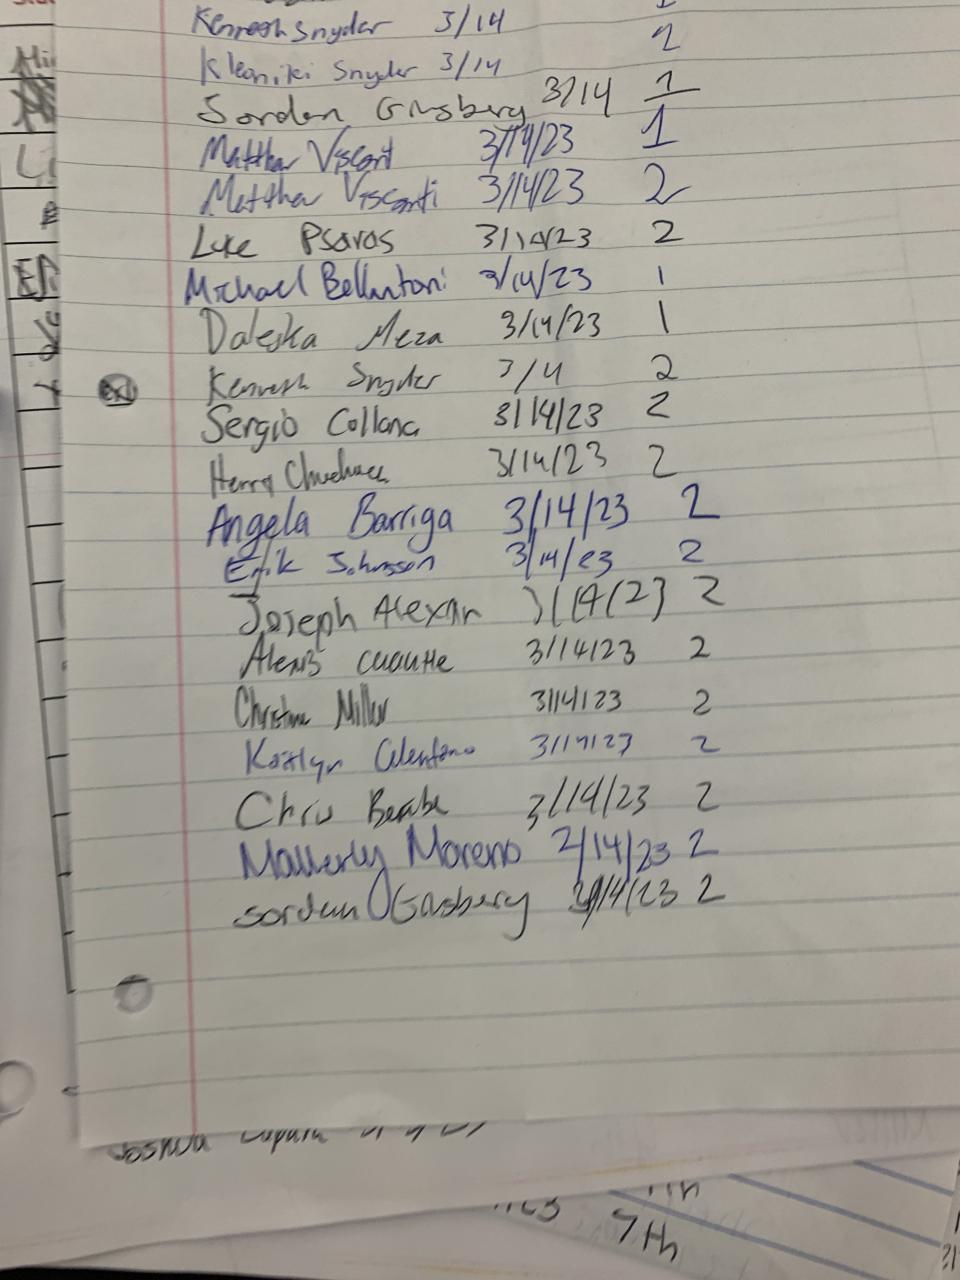 Kenneth Snyder 3/14
Kleoniki Snyder 3/14 2
Jordan Ginsberg 3/14 1
Matthew Visconti 3/14/23 1
Matthew Visconti 3/14/23 2
Luke Psaros 3/14/23 2
Michael Bellantoni 3/14/23 1
Daleska Meza 3/14/23 1
Kenneth Snyder 3/4 2
Sergio Collana 3/14/23 2
Henry 3/14/23 2
Angela Barriga 3/14/23 2
Erik Johnson 3/14/23 2
Joseph Alexan 3/14/23 2
Alexis cuautle 3/14/23 2
Christine Miller 3/14/23 2
Kaitlyn Celentano 3/14/23 2
Chris 3/14/23 2
Mallerly Moreno 2/14/23 2
Jordan Ginsberg 3/14/23 2
Joshua
7th